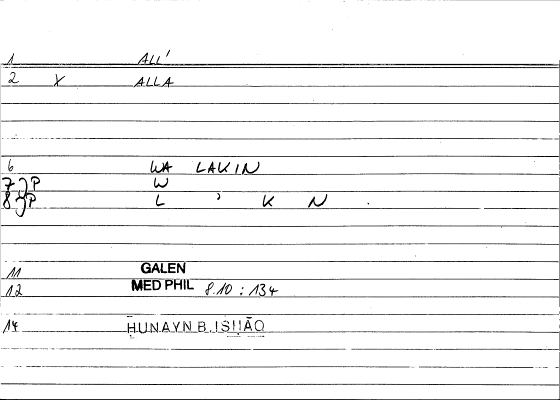 1 ALL'
2 X ALLA
6 WA LAKIN
7 JP W
8 JP L ' K N .
11 GALEN
12 MED PHIL 8.10 : 134
14 ḤUNAYN B. ISḤĀQ